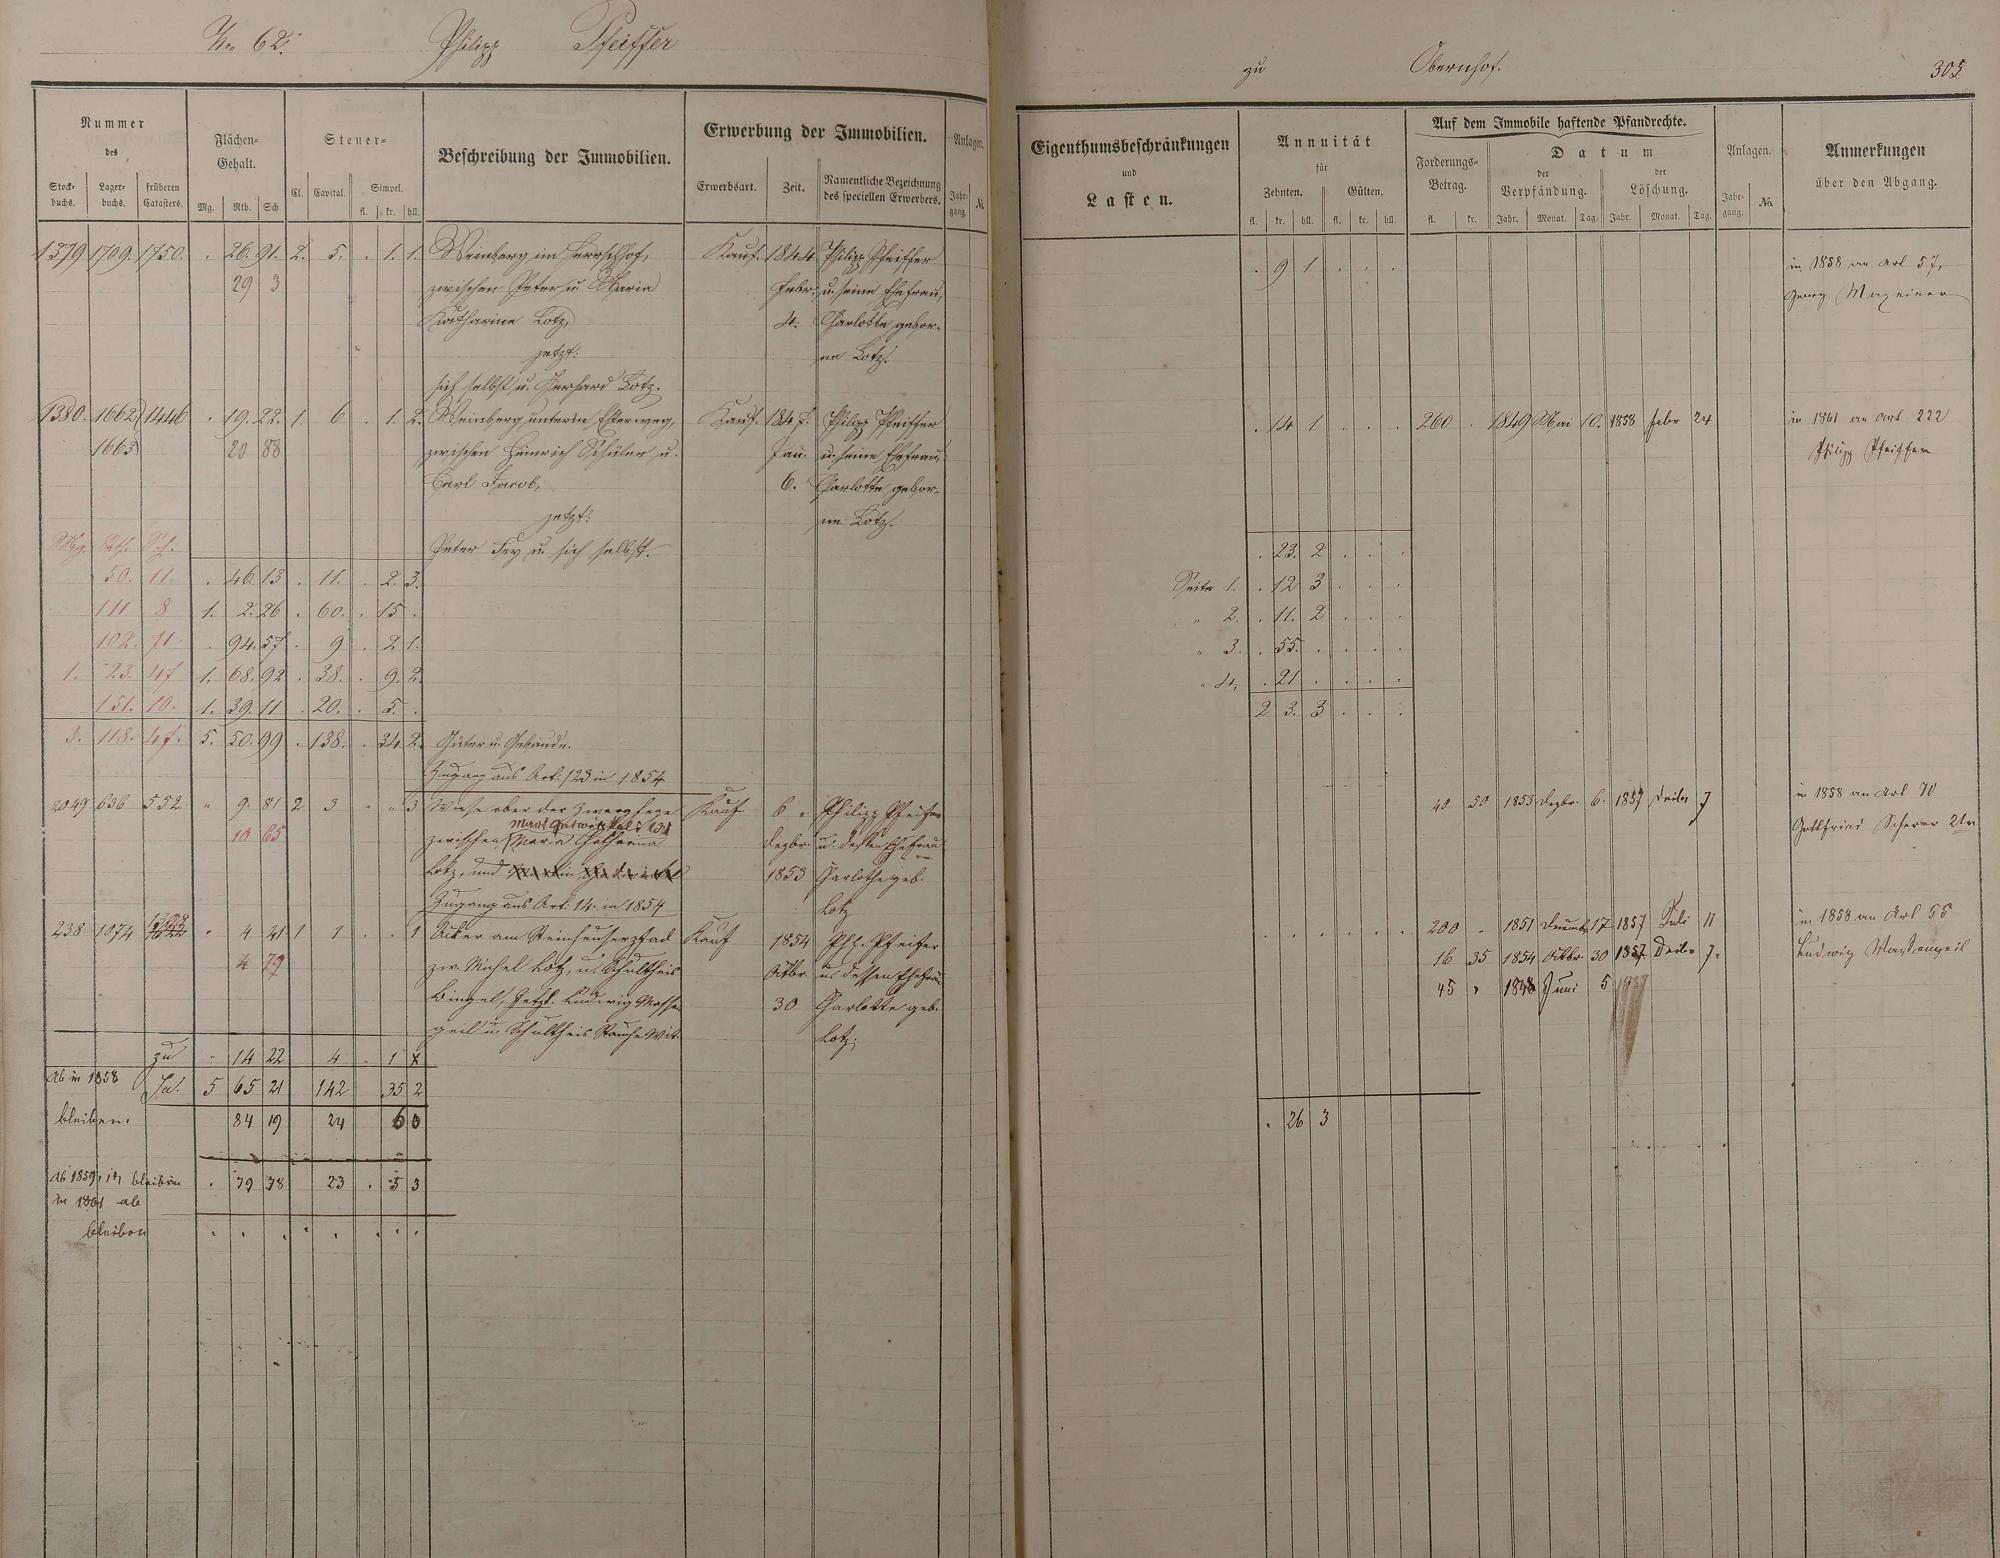 No 62. Philipp Pfeiffer
zu Obernhof. 305
Nummer des
Stockbuchs. Lagerbuchs. früheren Catasters.
Flächen-Gehalt.
Mg. Rth. Sch.
Steuer-
Cl. Capital. Simpel.
fl. kr. hll.
Beschreibung der Immobilien.
Erwerbung der Immobilien.
Erwerbsart. Zeit. Namentliche Bezeichnung des speciellen Erwerbers.
Anlagen.
Jahrgang. No.
Eigenthumsbeschränkungen und Lasten.
Annuität für
Zehnten. Gülten.
fl. kr. hll. fl. kr. hll.
Auf dem Immobile haftende Pfandrechte.
Forderungs-Betrag.
fl. kr.
Datum
der Verpfändung. der Löschung.
Jahr. Monat. Tag. Jahr. Monat. Tag.
Anlagen.
Jahrgang. No.
Anmerkungen über den Abgang.
1379 1709. 1750. . 26. 91. 2. 5. . 1. 1. Weinberg im Herrschhof, Kauf. 1844 Philipp Pfeiffer . 9 1 . . . in 1858 an Art 57,
29 3 zwischen Peter u Maria Febr. u. seine Ehefrau, Georg Maxeiner
Katharine Lotz, 4. Charlotte gebor-
jetzt: ne Lotz.
sich selbst u. Gerhard Lotz.
1380. 1662 1446 . 19. 22. 1. 6 . 1. 2. Weinberg unterm Esterweg, Kauf. 1847. Philipp Pfeiffer . 14 1 . . . 260 . 1849 Mai 10. 1858 Febr 24 in 1861 an Art 222
1663 20 88 zwischen Heinrich Schüler u. Jan. u. seine Ehefrau, Philipp Pfeiffer
Carl Jacob, 6. Charlotte gebor-
jetzt: ne Lotz.
Mg. Rth. Sch. Peter Fey u. sich selbst. . 23. 2 . . .
50. 11. . 46. 13 . 11. . 2. 3. Seite 1. . 12 3 . . .
111 8 1. 2. 26 . 60. . 15 . " 2. . 11. 2 . . .
102. 71. . 94. 57 . 9 . 2 1. " 3. . 55. . . . .
1. 23. 47 1. 68. 92 . 38. . 9. 2. " 4. . 21 . . . .
151. 10. 1. 39. 11 . 20. . 5. . 2 3. 3 . . .
3. 118. 47. 5. 50. 99 . 138. . 34. 2. Güter u. Gebäude.
Zugang aus Art. 123 in 1854
2049 636 552 " 9. 81 2 3 " " 3 Wiese ober der Kauf 6 " Philipp Pfeiffer 40 50 1853 Dezbr. 6. 1857 7 in 1858 an Art 70
10 65 zwischen Maria Catharina Dezbr. u. dessen Ehefrau Gottfried Scherer 2tr
Lotz, und 1853 Carlothe geb.
Zugang aus Art. 14. in 1854 Lotz
238 1074 " 4 41 1 1 . . 1 Acker am Kauf 1854 Phl. Pfeifer . . . . . . 200 . 1851 17 1857 Juli 11 in 1858 an Art 55
4 79 zw. Michel Lotz, u. Schultheis Oktbr. u. dessen Ehefrau 16 35 1854 Oktbr 30 1857 7. Ludwig Massengeil
Bingel, Jetzt. Ludwig Massen 30 Carlotte geb. 45 " 1848 Juni 5
geil u. Schultheis Wit. Lotz,
zu " 14 22 4 " 1
Ab in 1858 Sa. 5 65 21 142 35 2
bleiben. 84 19 24 6 0 . 26 3
Ab 1859, bleiben . 79 78 23 . 5 3
in 1861 ab
bleiben . . . . . . . .